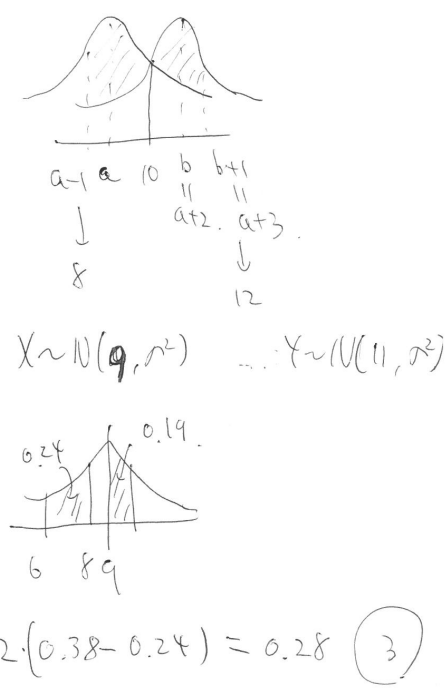 a-1 a 10 b b+1
|| ||
a+2. a+3.
↓ ↓
8 12
X~N(9, σ²) .... Y~N(11, σ²)
0.24 0.19.
6 8 9
2·(0.38-0.24) = 0.28 3